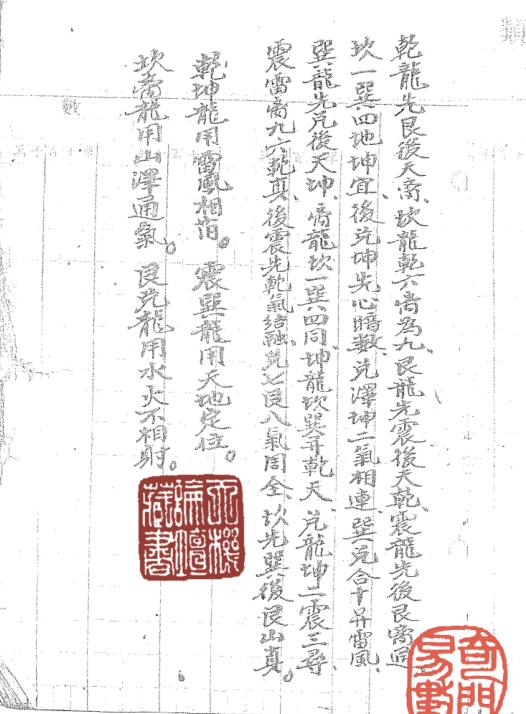 乾龍先艮後天离、坎龍乾六离為九、艮龍先震後天乾、震龍先後艮离週、
坎一巽四地坤宜、後兑坤先心暗数、兑澤坤二氣相連、巽兑合十昇雷風、
巽龍先兑後天坤、离龍坎一巽四同、坤龍坎巽昇乾天、兑龍坤二震三尋、
震雷离九六乾真、後震先乾氣結融、兑七艮八氣周全、坎先巽後艮山真。
乾坤龍用雷風相薄。震巽龍用天地定位。
坎离龍用山澤通氣。艮兑龍用水火不相射。
數
類
論壇
藏書
奇門
易數